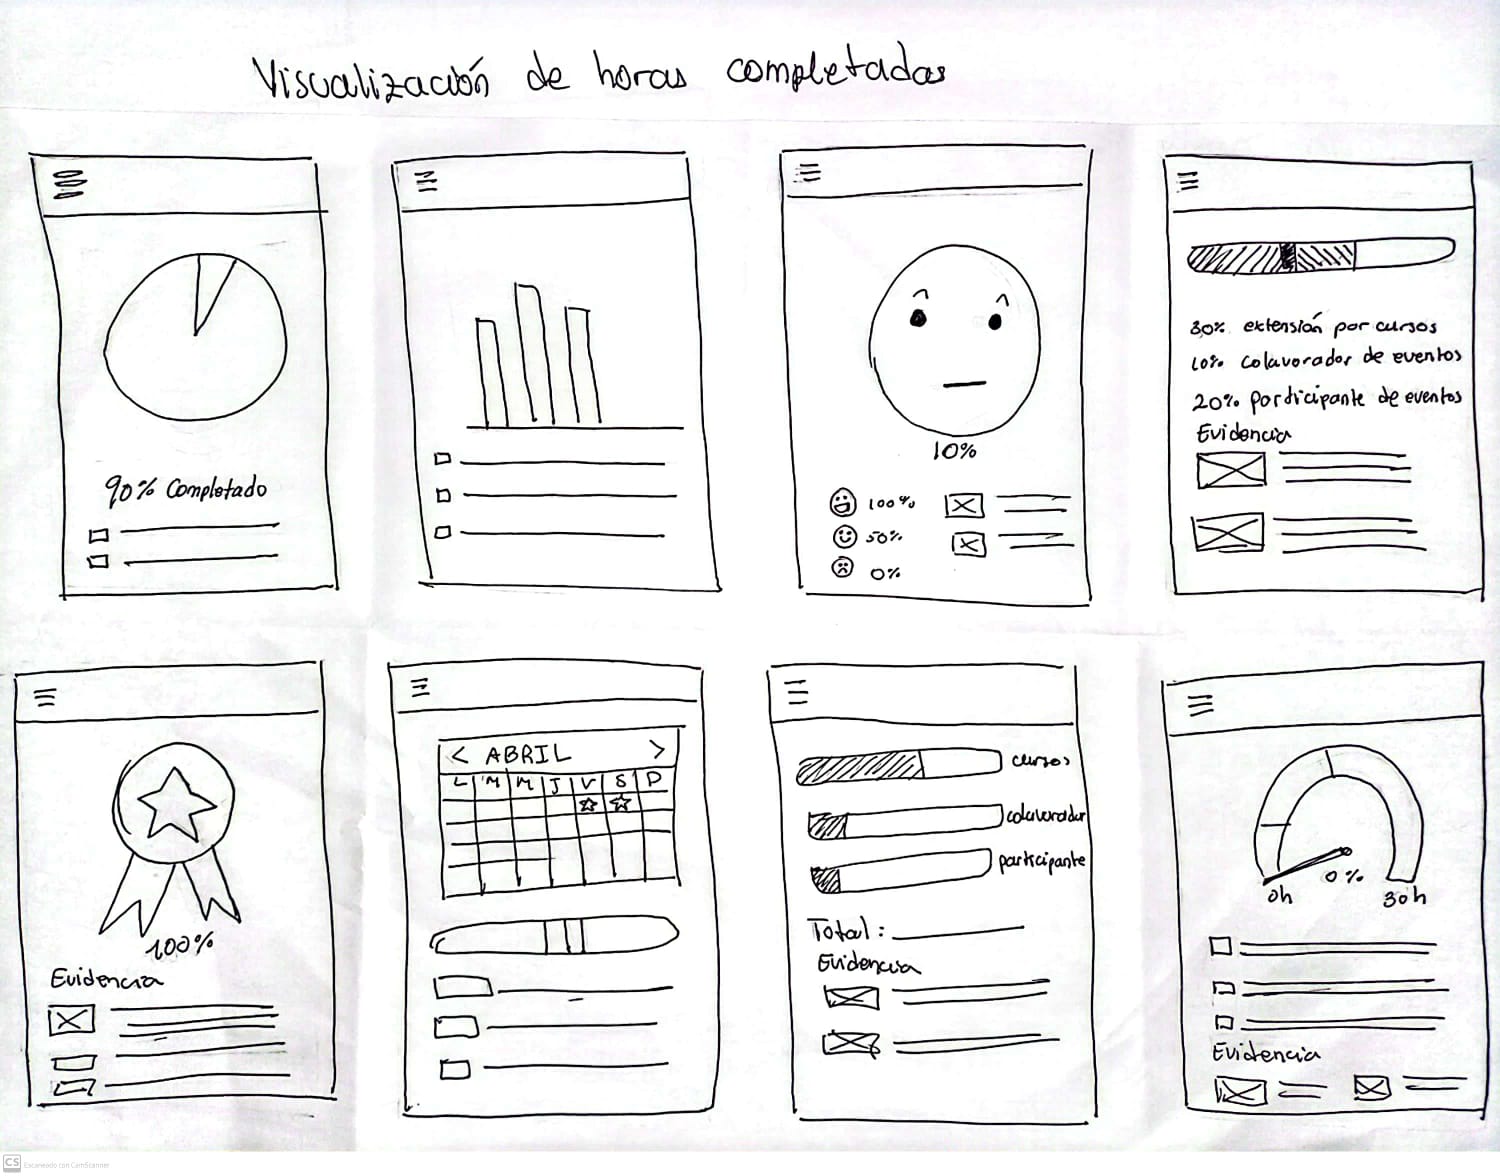 Visualización de horas completadas
90% Completado
10%
100%
50%
0%
30% extensión por cursos
10% colavorador de eventos
20% participante de eventos
Evidencia
100%
Evidencia
< ABRIL >
L M M J V S D
cursos
colavorador
participante
Total:
Evidencia
0%
0h
30h
Evidencia
CS Escaneado con CamScanner